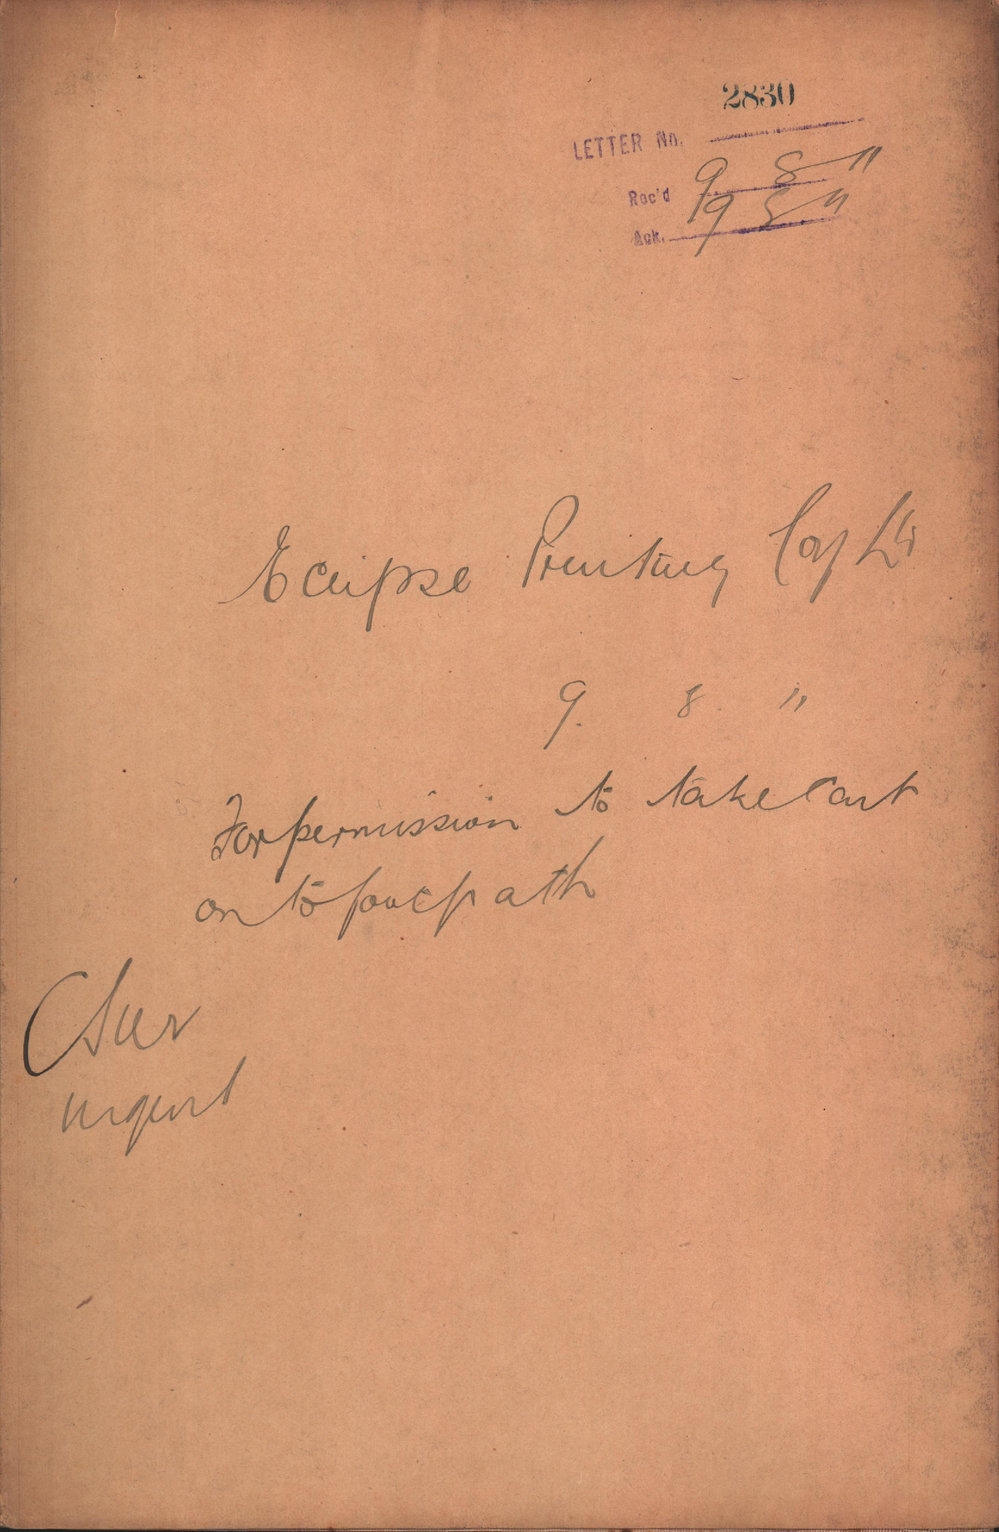 2830
LETTER No.
Rec'd 9 8 11
Ack. 9 8 11
Eclipse Printing Coy Ld
9. 8. 11
For permission to take Cart
on to footpath
Sur
urgent